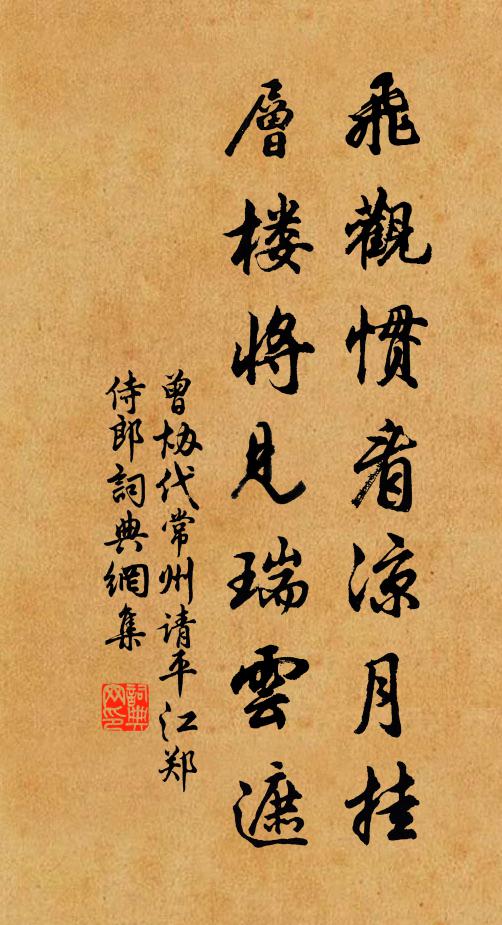 飛觀慣看涼月挂
層楼將見瑞雲遮
曾协代常州请平江郑
侍郎詞典網集
詞典网印